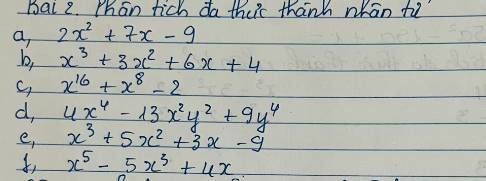 Bài 2. Phân tích đa thức thành nhân tử
a, 2x² + 7x - 9
b, x³ + 3x² + 6x + 4
c, x¹⁶ + x⁸ - 2
d, 4x⁴ - 13x²y² + 9y⁴
e, x³ + 5x² + 3x - 9
f, x⁵ - 5x³ + 4x